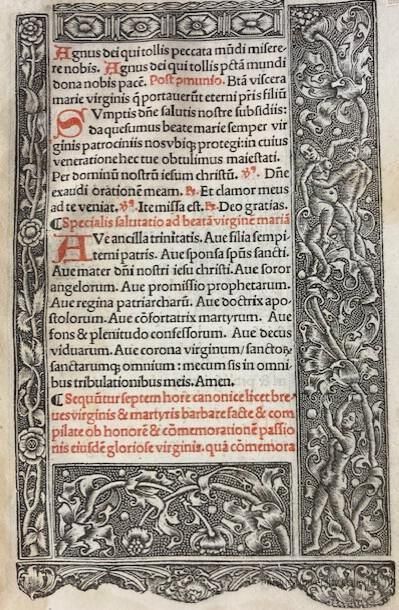 Agnus dei qui tollis peccata mūdi misere-
re nobis. Agnus dei qui tollis pctā mundi
dona nobis pacē. Post cōmunio. Btā viscera
marie virginis q portauerūt eterni pris filiū
SVmptis dñe salutis nostre subsidiis:
da quesumus beate marie semper vir
ginis patrociniis nos vbiqȝ protegi: in cuius
veneratione hec tue obtulimus maiestati.
Per dominū nostrū iesum christū. ℣. Dñe
exaudi orationē meam. ℟. Et clamor meus
ad te veniat. ℣. Ite missa est. ℟. Deo gratias.
¶ Specialis salutatio ad beatā virginē mariā
AVe ancilla trinitatis. Aue filia sempi-
terni patris. Aue sponsa spūs sancti.
Aue mater dñi nostri iesu christi. Aue soror
angelorum. Aue promissio prophetarum.
Aue regina patriarcharū. Aue doctrix apo-
stolorum. Aue cōfortatrix martyrum. Aue
fons & plenitudo confessorum. Aue decus
viduarum. Aue corona virginum/ sanctoꝝ
sanctarumqȝ omnium: mecum sis in omni
bus tribulationibus meis. Amen.
¶ Sequūtur septem hore canonice licet bre-
ues virginis & martyris barbare facte & com
pilate ob honorē & cōmemorationē passio
nis eiusdē gloriose virginis. quā cōmemora